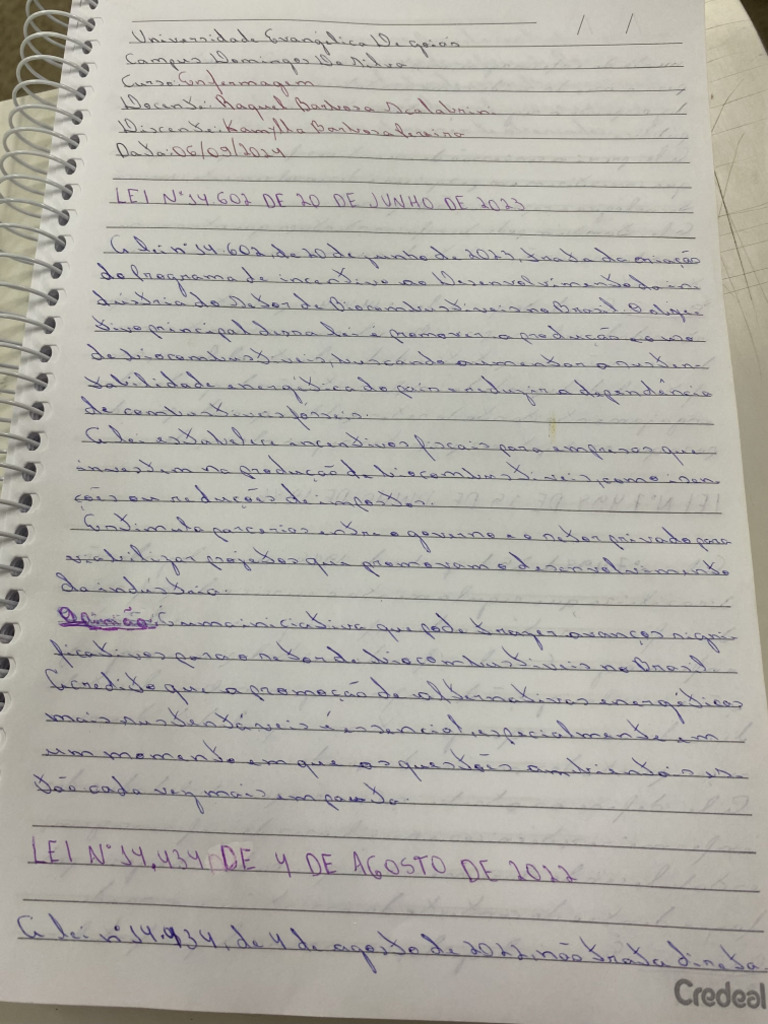 / /
Universidade Evangélica De goiás
Campus Domingos Da Silva
Curso: Enfermagem
Docente: Raquel Barbosa Scalabrini
Discente: Kamylla Barbosa Pereira
Data: 06/09/2024
LEI N° 14.602 DE 20 DE JUNHO DE 2023
A lei n° 14.602, de 20 de junho de 2023, trata da criação
do Programa de incentivo ao Desenvolvimento da in-
dústria do Setor de Biocombustíveis no Brasil. O obje
tivo principal dessa lei é promover a produção e o uso
de biocombustíveis, buscando aumentar a susten-
tabilidade energética do país e reduzir a dependência
de combustíveis fósseis.
A lei estabelece incentivos fiscais para empresas que
investem na produção de biocombustíveis, como isen-
ções ou reduções de impostos.
Estimula parcerias entre o governo e o setor privado para
viabilizar projetos que promovam o desenvolvimento
da indústria.
Opinião: É uma iniciativa que pode trazer avanços signi
ficativos para o setor de biocombustíveis no Brasil.
Acredito que a promoção de alternativas energéticas
mais sustentáveis é essencial, especialmente em
um momento em que as questões ambientais es-
tão cada vez mais em pauta.
LEI N° 14.434, DE 4 DE AGOSTO DE 2022
A lei n° 14.434, de 4 de agosto de 2022, não trata direta-
Credeal